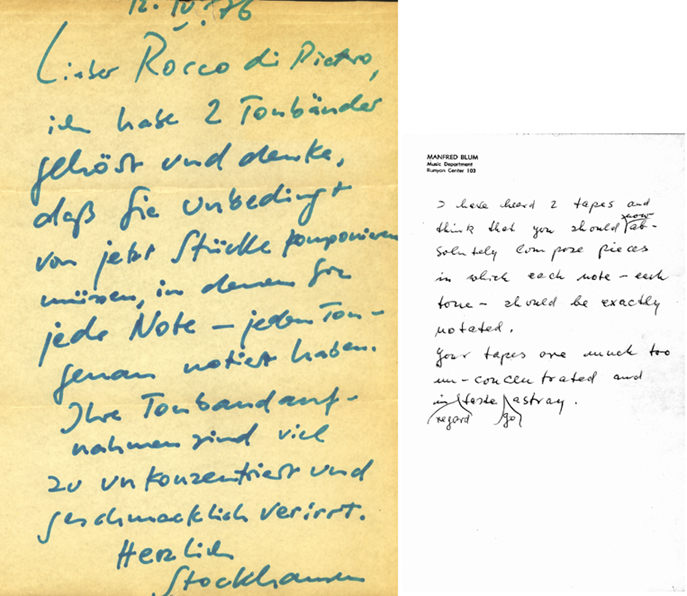 12. IV. 76
Lieber Rocco di Pietro,
ich habe 2 Tonbänder
gehört und denke,
daß Sie unbedingt
von jetzt Stücke komponieren
müssen, in denen Sie
jede Note – jeden Ton –
genau notiert haben.
Ihre Tonbandauf-
nahmen sind viel
zu unkonzentriert und
geschmacklich verirrt.
Herzlich
Stockhausen
MANFRED BLUM
Music Department
Runyon Center 103
I have heard 2 tapes and
now
think that you should ab-
solutely compose pieces
in which each note – each
tone – should be exactly
notated.
Your tapes are much too
un-concentrated and
in taste astray.
regard go